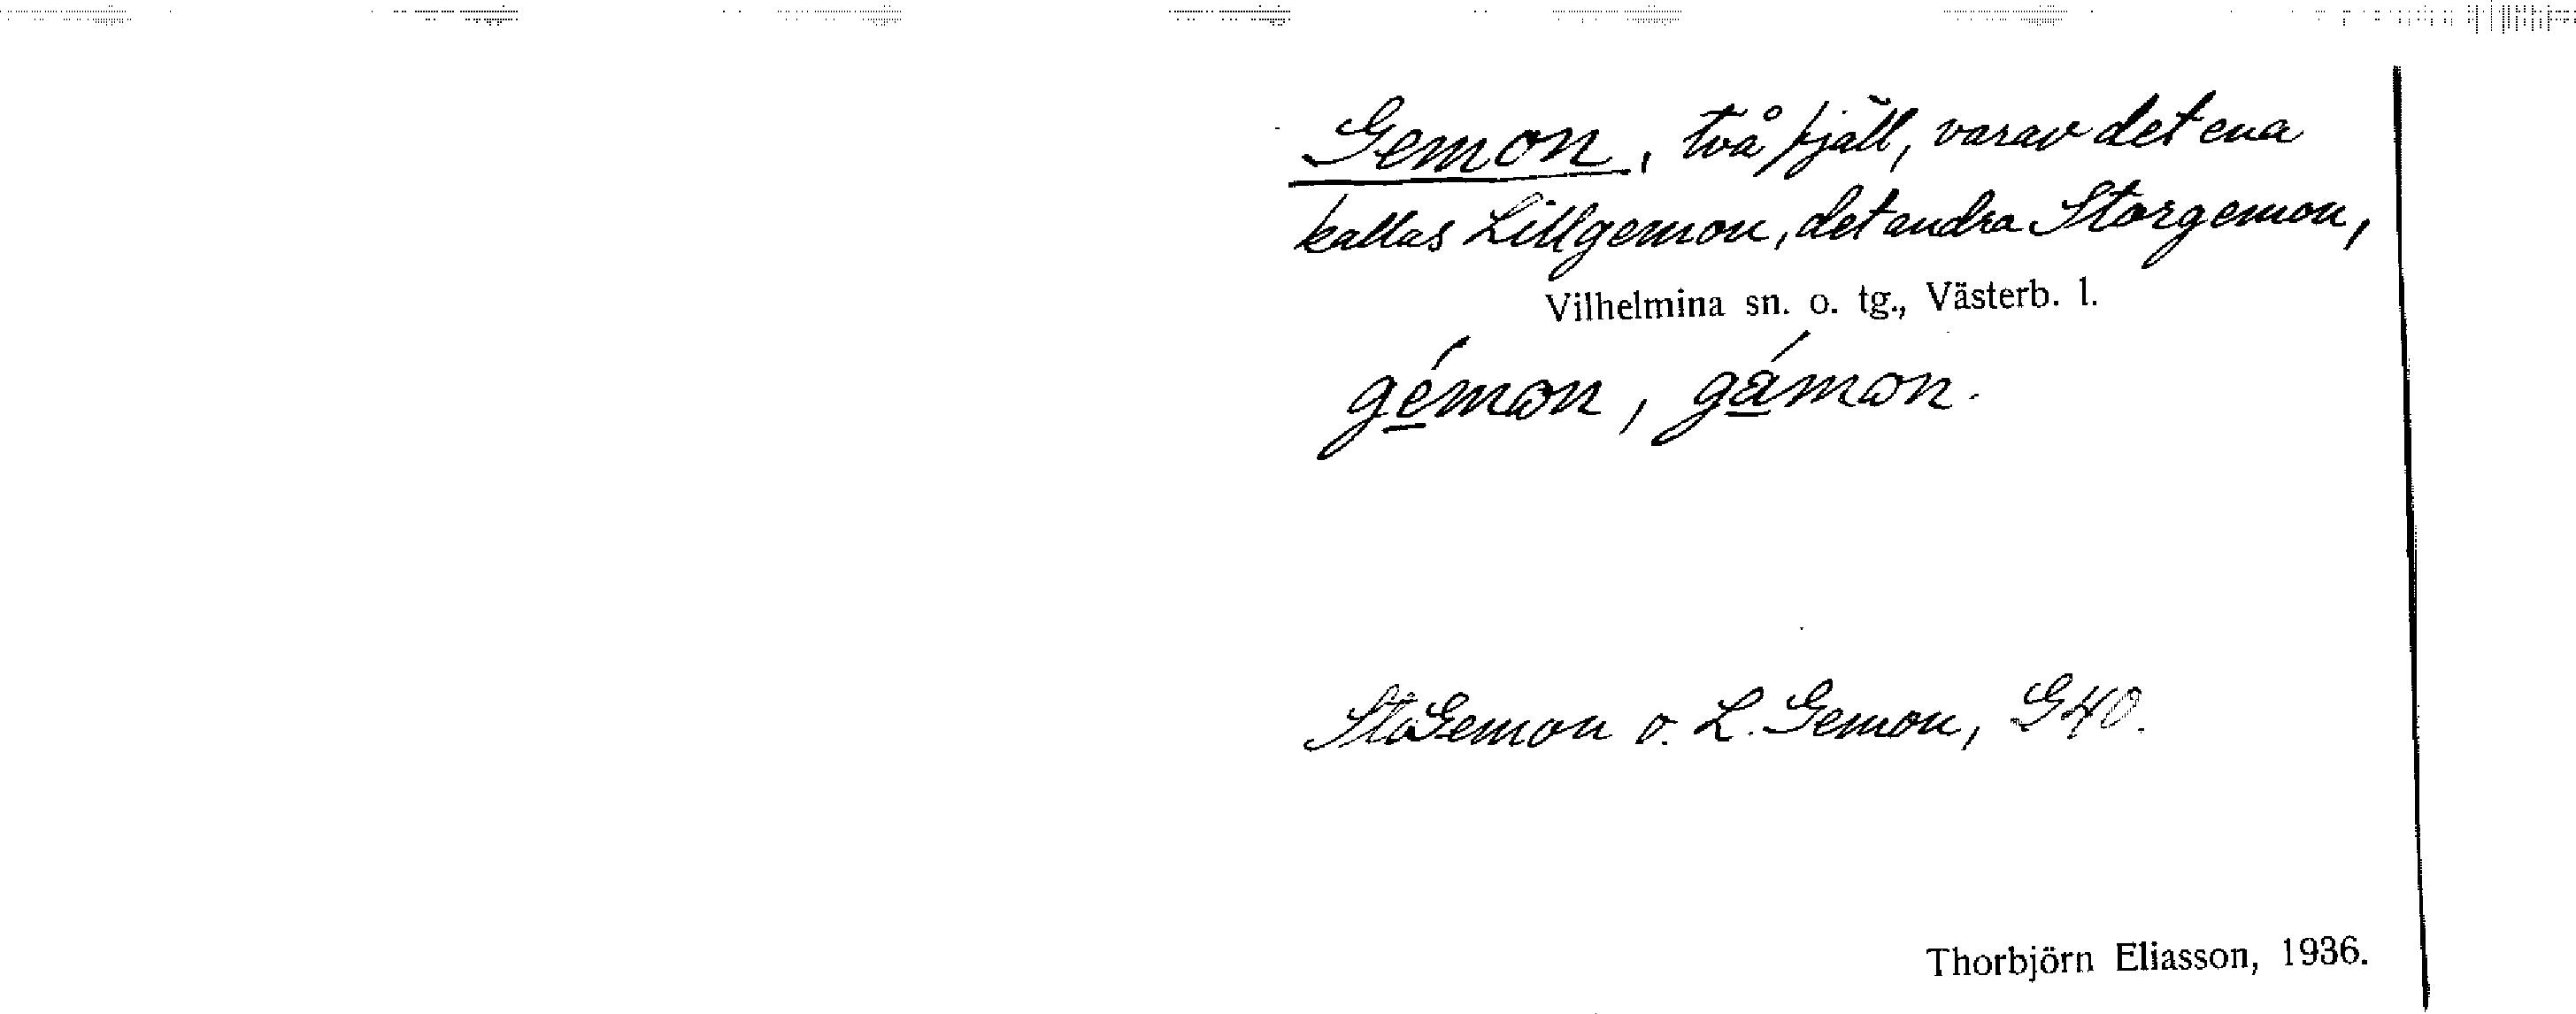 Gemon, två fjäll, varav det ena
kallas Lillgemon, det andra Storgemon,
Vilhelmina sn. o. tg., Västerb. l.
gémon, gámon.
Sta Gemon o. L. Gemon, G40.
Thorbjörn Eliasson, 1936.